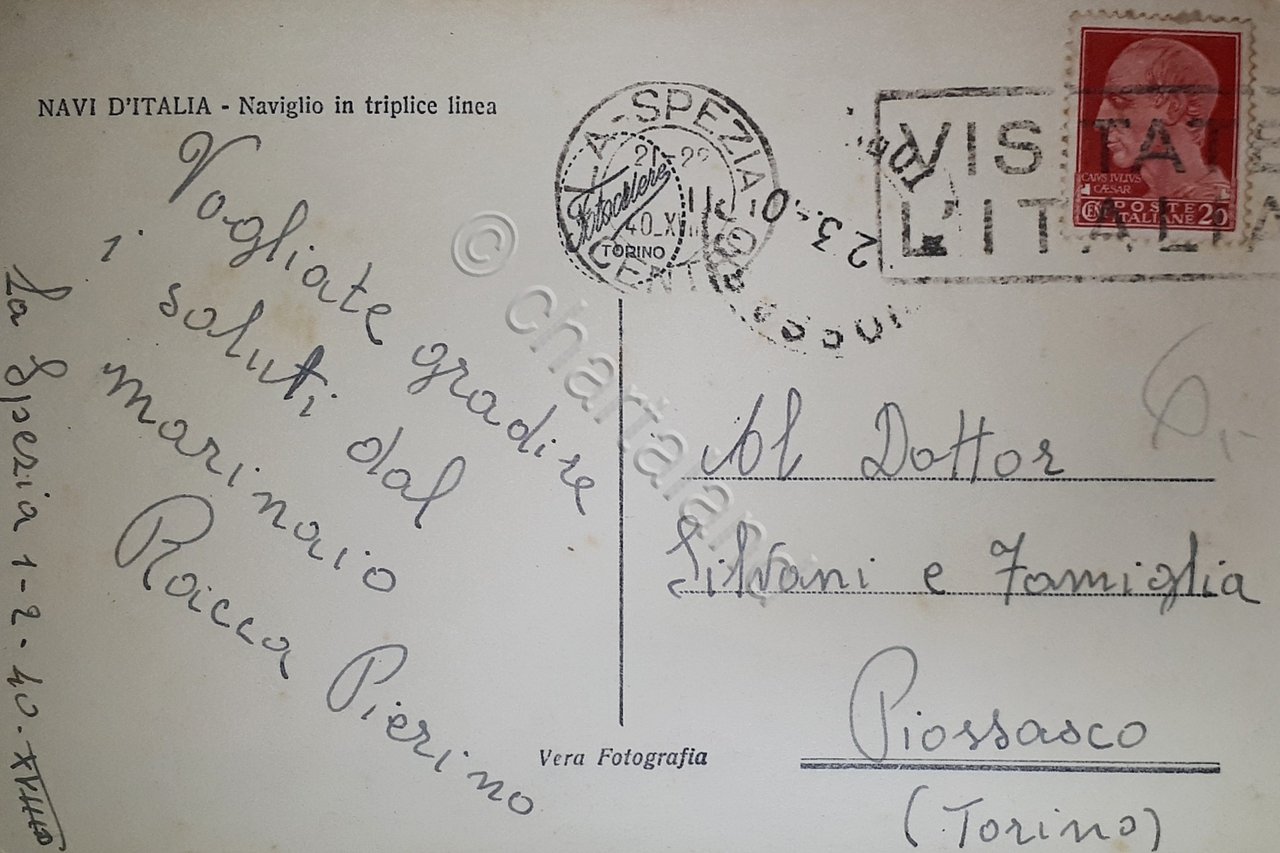 NAVI D'ITALIA - Naviglio in triplice linea
Vogliate gradire
i saluti dal
marinaio
Racca Pierino
La Spezia 1-2-40-XVIII
LA-SPEZIA
21-22
II
40_XVIII
CENTRO
Fotocelere
TORINO
23. 40
VISITATE
L'ITALIA
CAIVS IVLIVS
CAESAR
CEN POSTE ITALIANE 20
© chartaland
Al Dottor
Silvani e Famiglia
Piossasco
(Torino)
Vera Fotografia